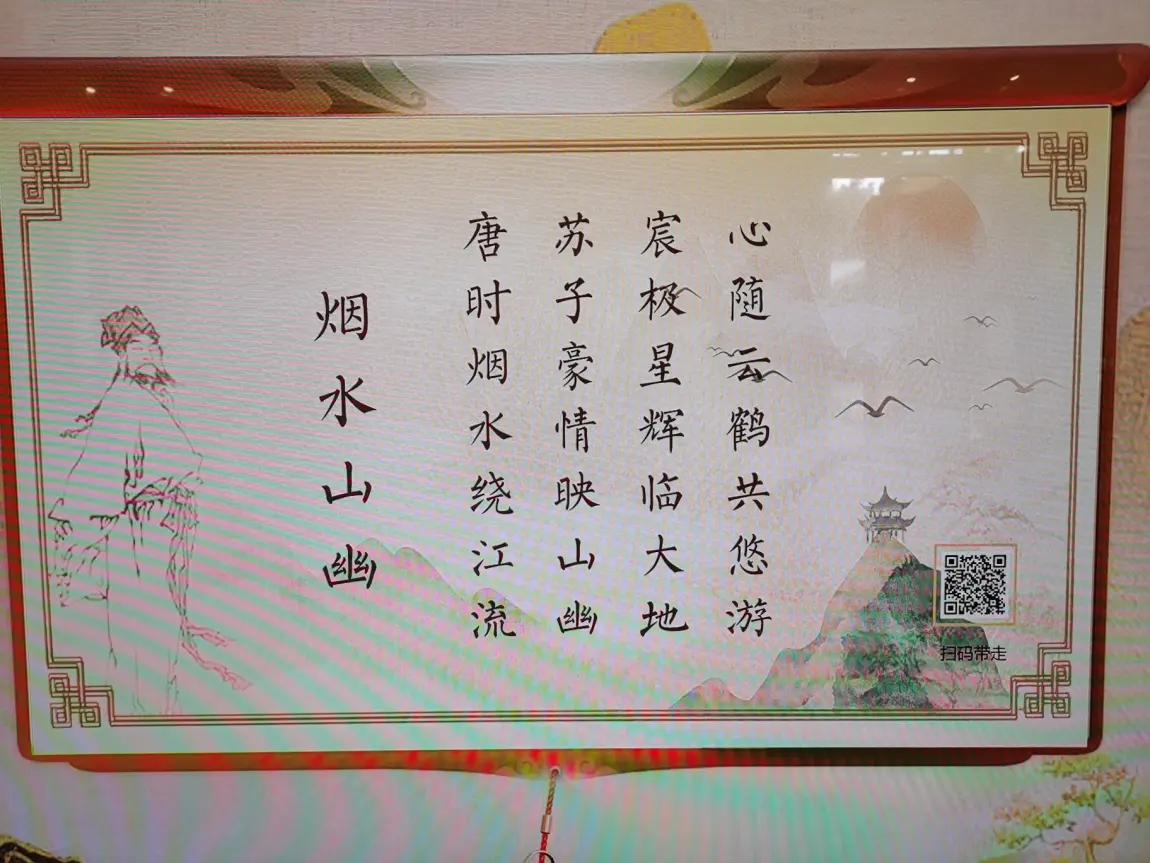 烟水山幽
唐时烟水绕江流
苏子豪情映山幽
宸极星辉临大地
心随云鹤共悠游
扫码带走